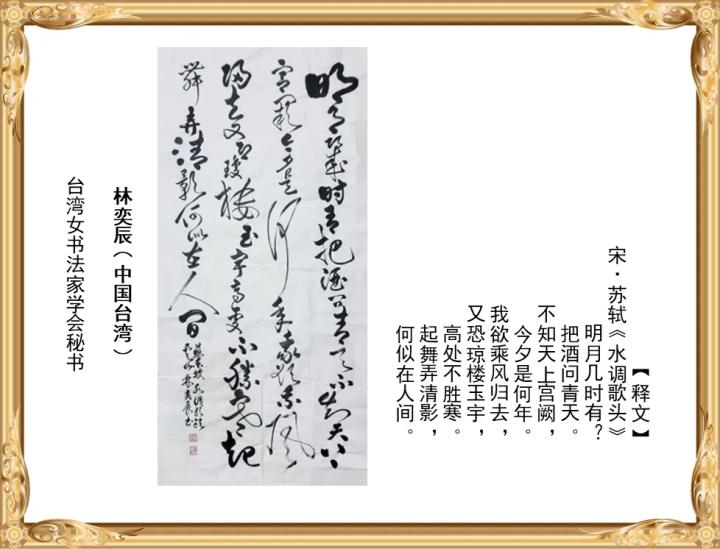 【释文】
宋·苏轼《水调歌头》
明月几时有？
把酒问青天。
不知天上宫阙，
今夕是何年。
我欲乘风归去，
又恐琼楼玉宇，
高处不胜寒。
起舞弄清影，
何似在人间。
明月幾時有把酒問青天不知天上
宮闕今夕是何年我欲乘風
歸去又恐瓊樓玉宇高處不勝寒起
舞弄清影何似在人間
蘇東坡水調歌頭
林奕辰書
林奕辰（中国台湾）
台湾女书法家学会秘书